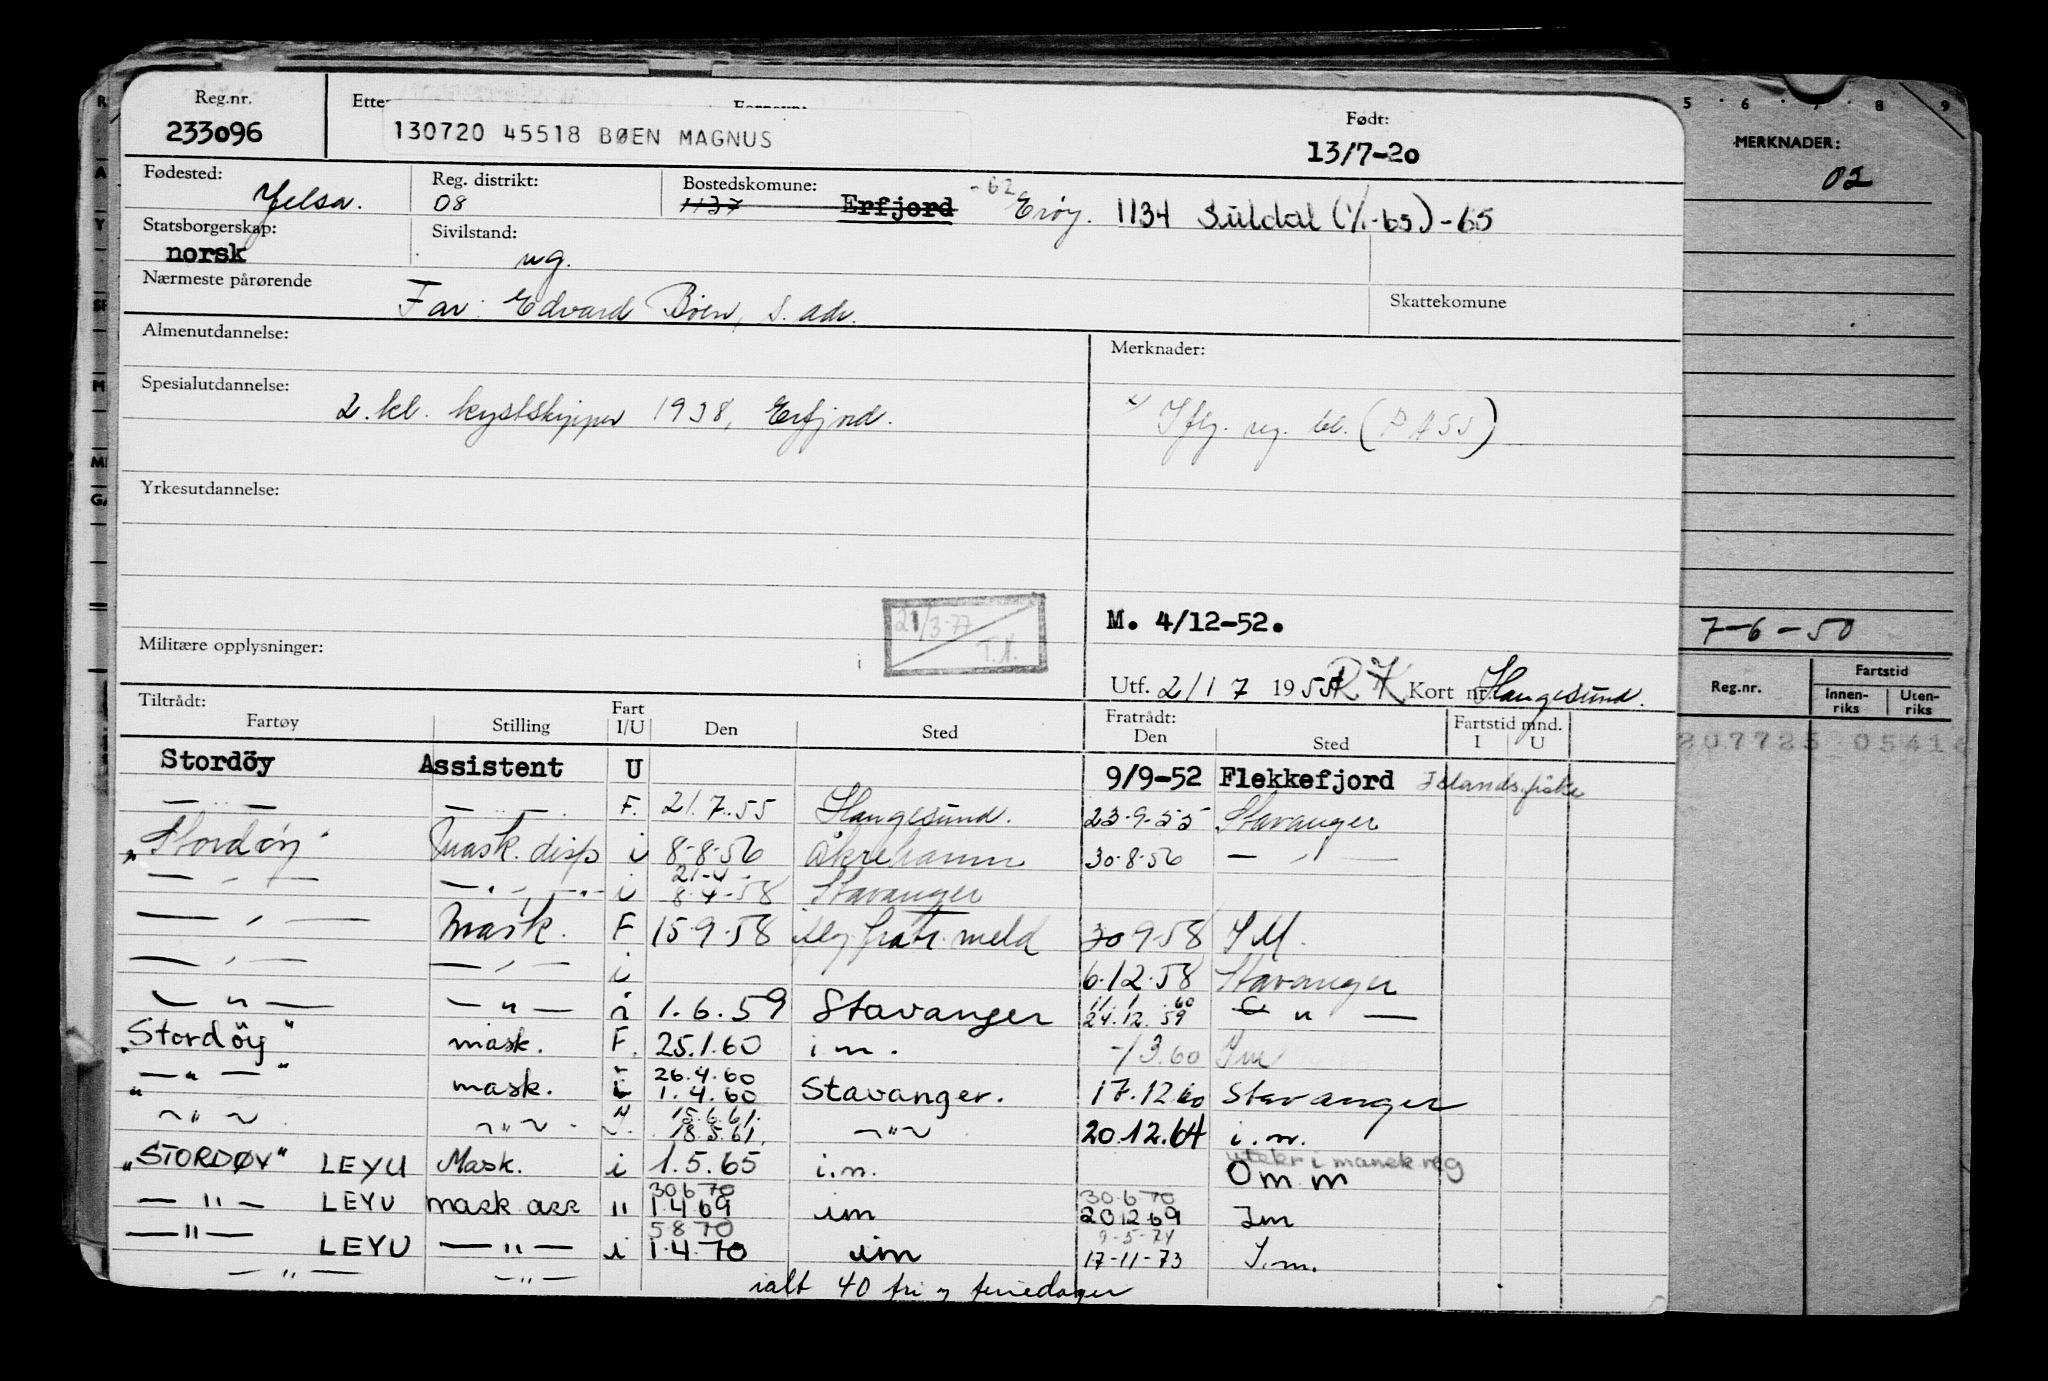 Reg.nr. Født:
233096 130720 45518 BØEN MAGNUS 13/7-20
MERKNADER:
02
Fødested: Jelsa. Reg. distrikt: 08 Bostedskomune: 1137 Erfjord -62 1134 Suldal (1/1-65) -65
Statsborgerskap: norsk Sivilstand: ug.
Nærmeste pårørende Far: Edvard Bøen, s. adr. Skattekomune
Almenutdannelse: Merknader:
Spesialutdannelse: 2. kl. kystskipper 1938, Erfjord.
Yrkesutdannelse:
21/3-77 T.A.
M. 4/12-52.
7-6-50
Militære opplysninger:
Utf. 21/7 1955 Kort nr. Haugesund.
Reg.nr. Fartstid Innen-riks Uten-riks
Tiltrådt: Fratrådt:
Fartøy Stilling Fart I/U Den Sted Den Sted Fartstid mnd. I U
Stordöy Assistent U 9/9-52 Flekkefjord Islandsfiske
— " — — " — F. 21.7.55 Haugesund. 23-9-55 Stavanger
"Stordöy" Mask. disp i 8-8-56 Åkrehamn 30-8-56 — " —
— " — — " — i 21-4- 8-4-58 Stavanger
— " — Mask. F 15-9-58 iflg. fratr. meld 30 9-58 I M.
— " — — " — i 6.12.58 Stavanger
— " — — " — i 1.6.59 Stavanger 11.1.60 24.12.59 — " —
"Stordöy" mask. F. 25.1.60 i m. -/3.60 I m
" — " — " mask. i 26.4.60 1.4.60 Stavanger. 17.12.60 Stavanger
— " — — " — 15.6.61. 18.5.61. — " — 20.12.64 i.m.
"STORDØY" LEYU Mask. i 1.5.65 i.m. Om m
— " — LEYU mask ass " 30 6 70 1.4 69 im 30.6 70 20 12 69 Im
— " — LEYU — " — i 5 8 70 1.4.70 im 9-5-74 17-11-73 I.m.
— " — — " — ialt 40 fri og feriedager